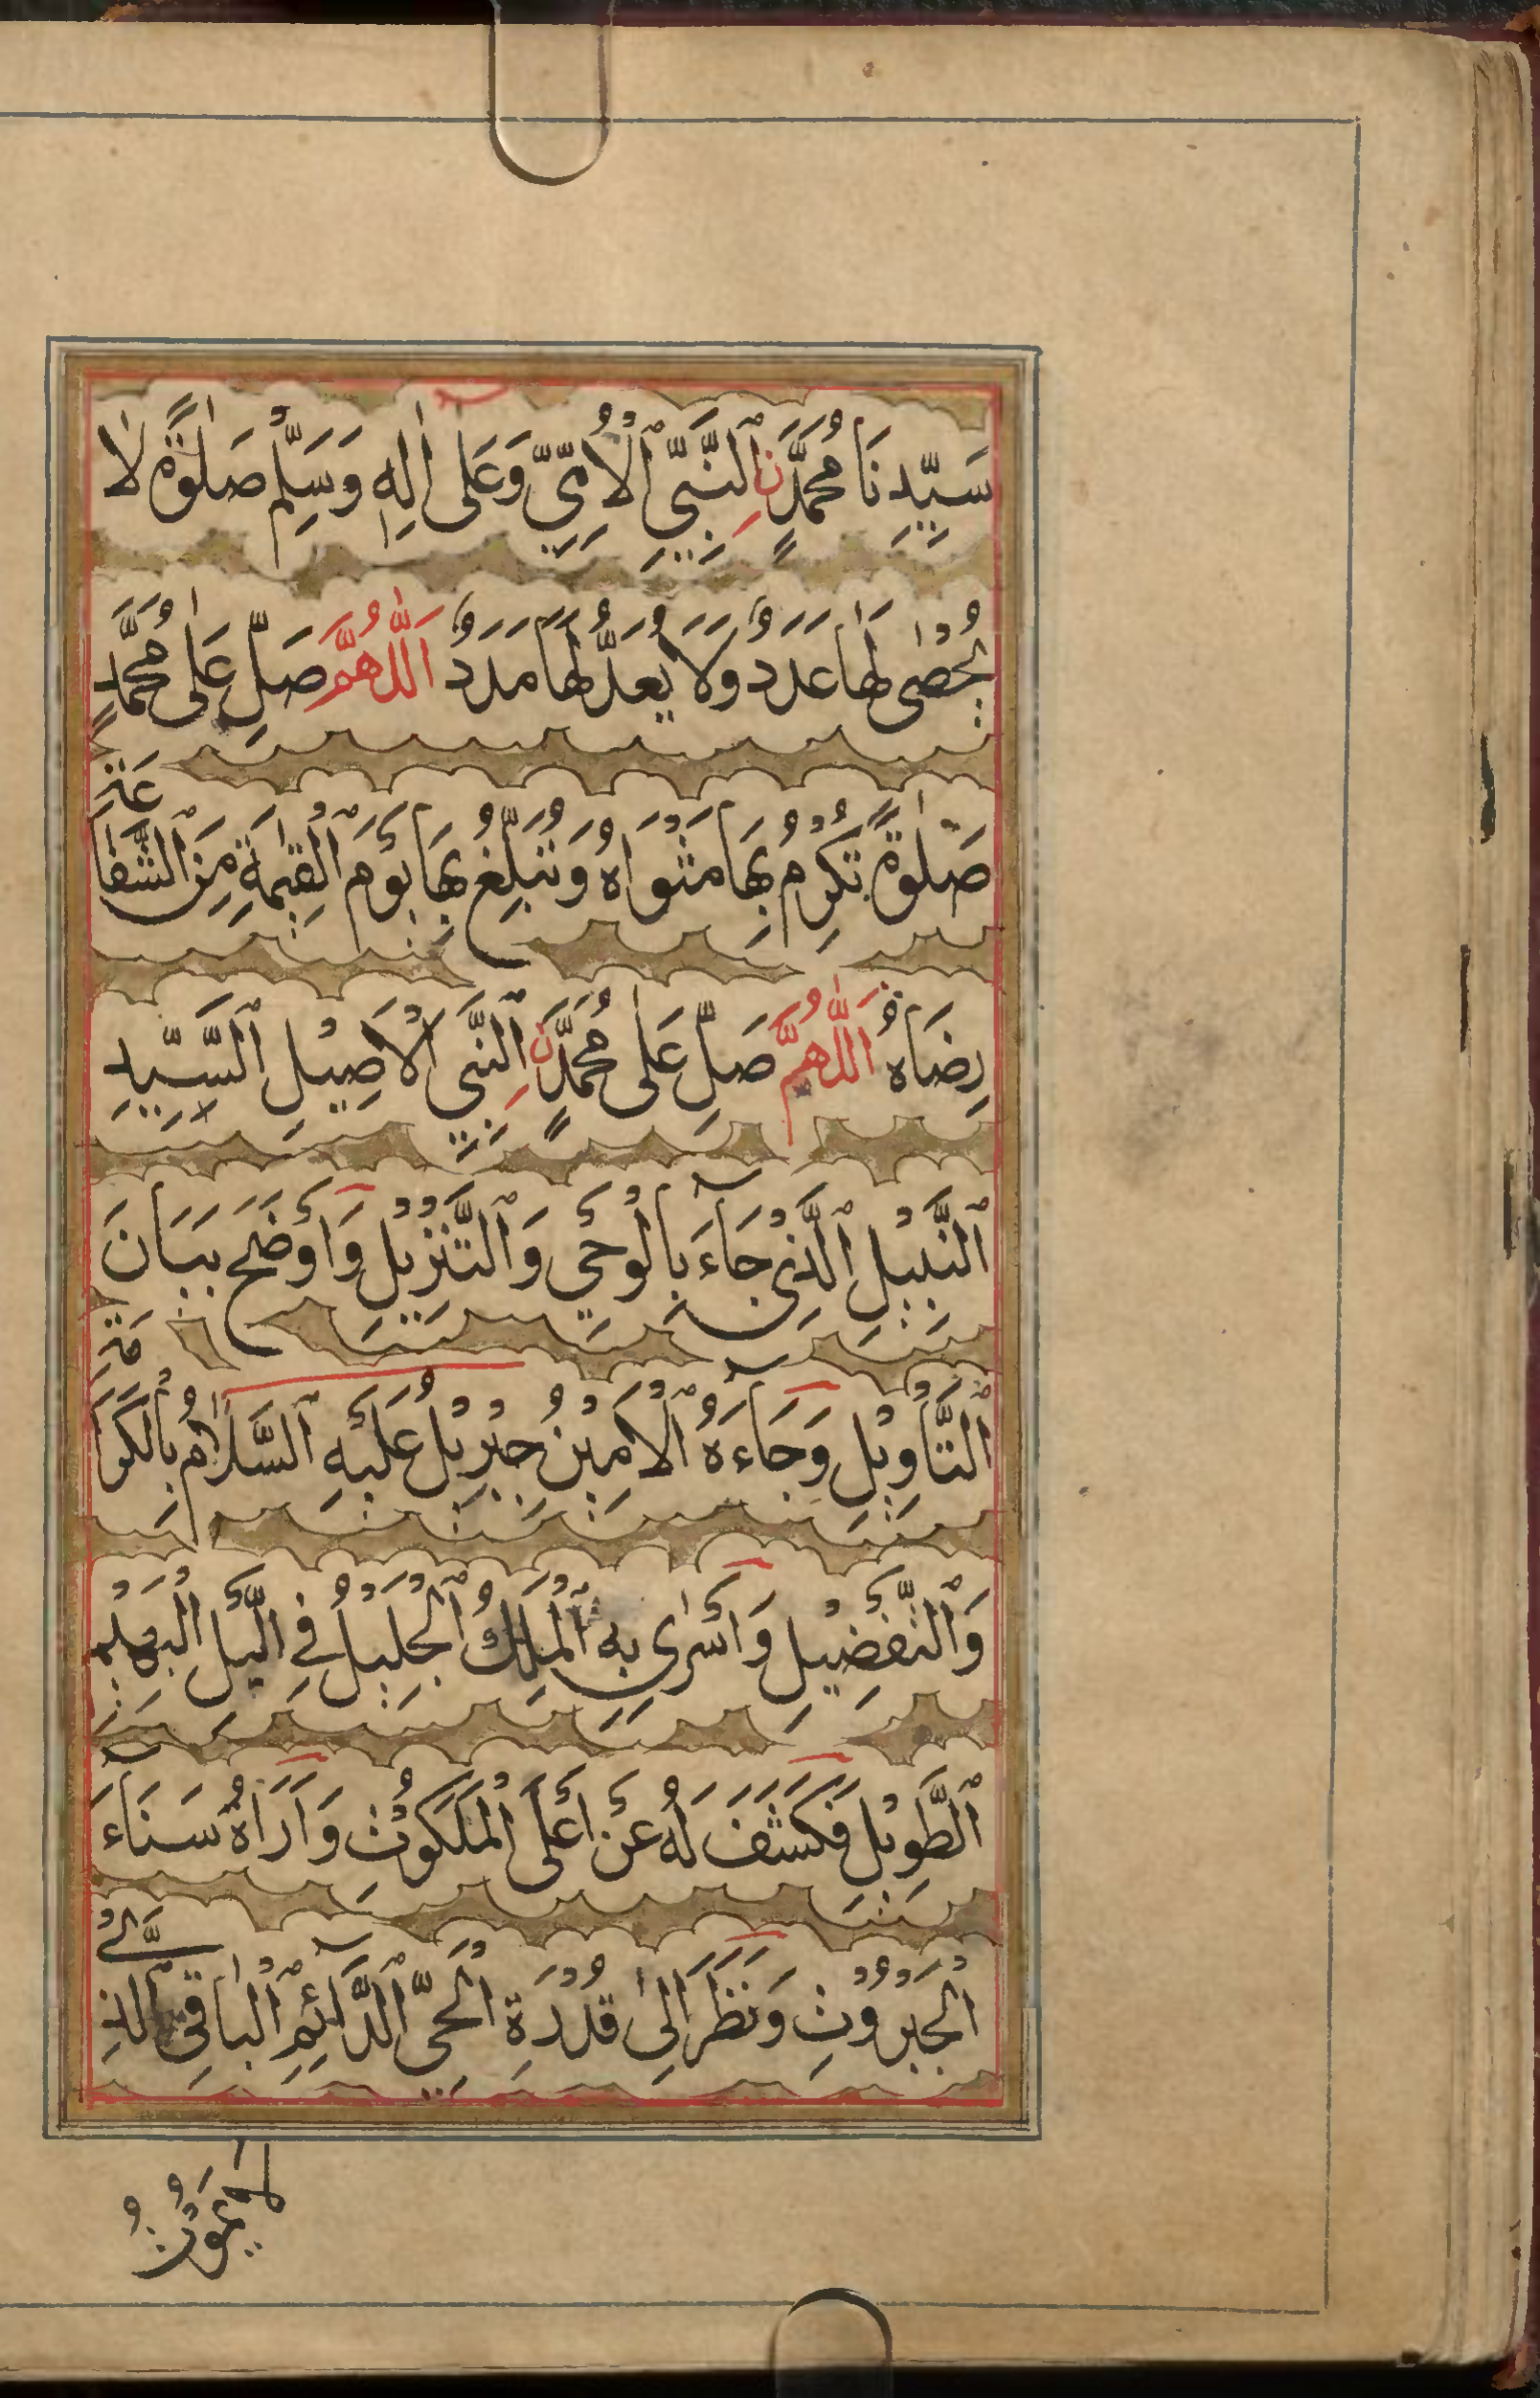 سَيِّدِنَا مُحَمَّدٍنِ ٱلنَّبِيِّ ٱلْأُمِّيِّ وَعَلٰى اٰلِهٖ وَسَلِّمْ صَلٰوةً لَا
يُحْصٰى لَهَا عَدَدٌ وَلَا يُعَدُّ لَهَا مَدَدٌ اَللّٰهُمَّ صَلِّ عَلٰى مُحَمَّدٍ
صَلٰوةً تُكْرِمُ بِهَا مَثْوَاهُ وَتُبَلِّغُ بِهَا يَوْمَ ٱلْقِيٰمَةِ مِنَ ٱلشَّفَاعَةِ
رِضَاهُ اَللّٰهُمَّ صَلِّ عَلٰى مُحَمَّدٍنِ ٱلنَّبِيِّ ٱلْاَصِيْلِ ٱلسَّيِّدِ
ٱلنَّبِيْلِ ٱلَّذِيْ جَآءَ بِالْوَحْيِ وَٱلتَّنْزِيْلِ وَاَوْضَحَ بَيَانَ
ٱلتَّأْوِيْلِ وَجَآءَهُ ٱلْاَمِيْنُ جِبْرِيْلُ عَلَيْهِ ٱلسَّلَامُ بِالْكَرَامَةِ
وَٱلتَّفْضِيْلِ وَاَسْرٰى بِهِ ٱلْمَلِكُ ٱلْجَلِيْلُ فِي ٱلَّيْلِ ٱلْبَهِيْمِ
ٱلطَّوِيْلِ فَكَشَفَ لَهُ عَنْ اَعْلَى ٱلْمَلَكُوْتِ وَاَرَاهُ سَنَآءَ
ٱلْجَبَرُوْتِ وَنَظَرَ اِلٰى قُدْرَةِ ٱلْحَيِّ ٱلدَّآئِمِ ٱلْبَاقِي ٱلَّذِيْ
لَا يَمُوْتُ